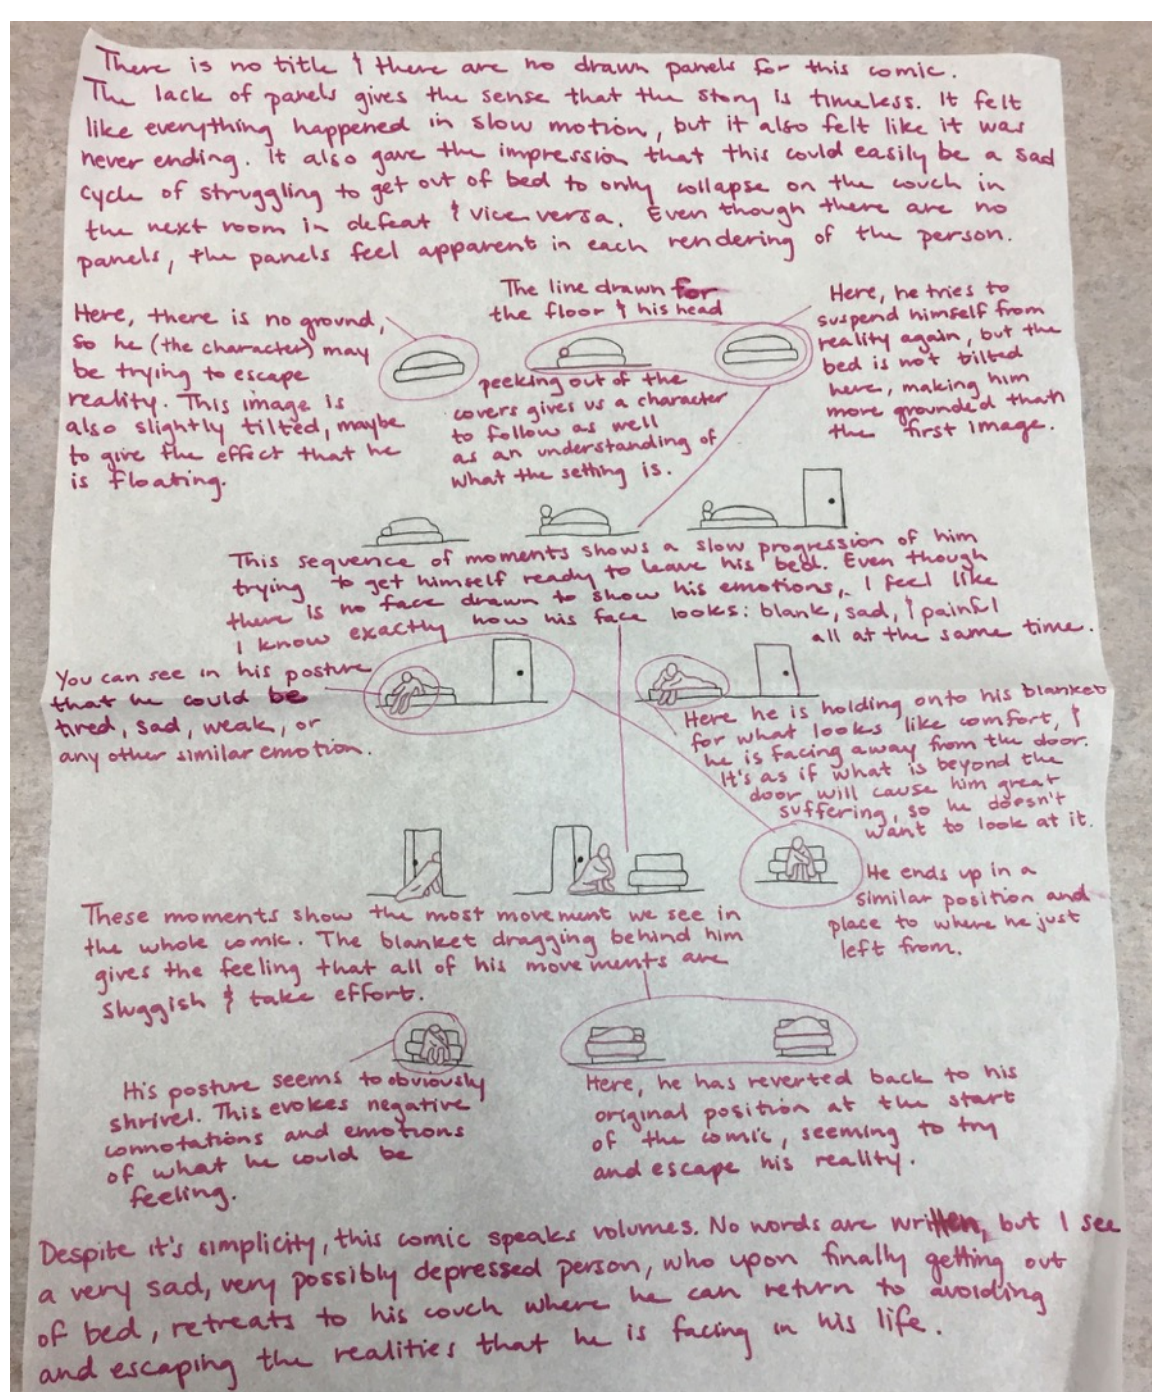 There is no title & there are no drawn panels for this comic.
The lack of panels gives the sense that the story is timeless. It felt
like everything happened in slow motion, but it also felt like it was
never ending. It also gave the impression that this could easily be a sad
cycle of struggling to get out of bed to only collapse on the couch in
the next room in defeat & vice versa. Even though there are no
panels, the panels feel apparent in each rendering of the person.
Here, there is no ground,
so he (the character) may
be trying to escape
reality. This image is
also slightly tilted, maybe
to give the effect that he
is floating.
The line drawn for
the floor & his head
peeking out of the
covers gives us a character
to follow as well
as an understanding of
what the setting is.
Here, he tries to
suspend himself from
reality again, but the
bed is not tilted
here, making him
more grounded than
the first image.
This sequence of moments shows a slow progression of him
trying to get himself ready to leave his bed. Even though
there is no face drawn to show his emotions, I feel like
I know exactly how his face looks: blank, sad, & painful
all at the same time.
You can see in his posture
that he could be
tired, sad, weak, or
any other similar emotion.
Here he is holding onto his blanket
for what looks like comfort, &
he is facing away from the door.
It's as if what is beyond the
door will cause him great
suffering, so he doesn't
want to look at it.
He ends up in a
similar position and
place to where he just
left from.
These moments show the most movement we see in
the whole comic. The blanket dragging behind him
gives the feeling that all of his movements are
sluggish & take effort.
His posture seems to obviously
shrivel. This evokes negative
connotations and emotions
of what he could be
feeling.
Here, he has reverted back to his
original position at the start
of the comic, seeming to try
and escape his reality.
Despite it's simplicity, this comic speaks volumes. No words are written, but I see
a very sad, very possibly depressed person, who upon finally getting out
of bed, retreats to his couch where he can return to avoiding
and escaping the realities that he is facing in his life.